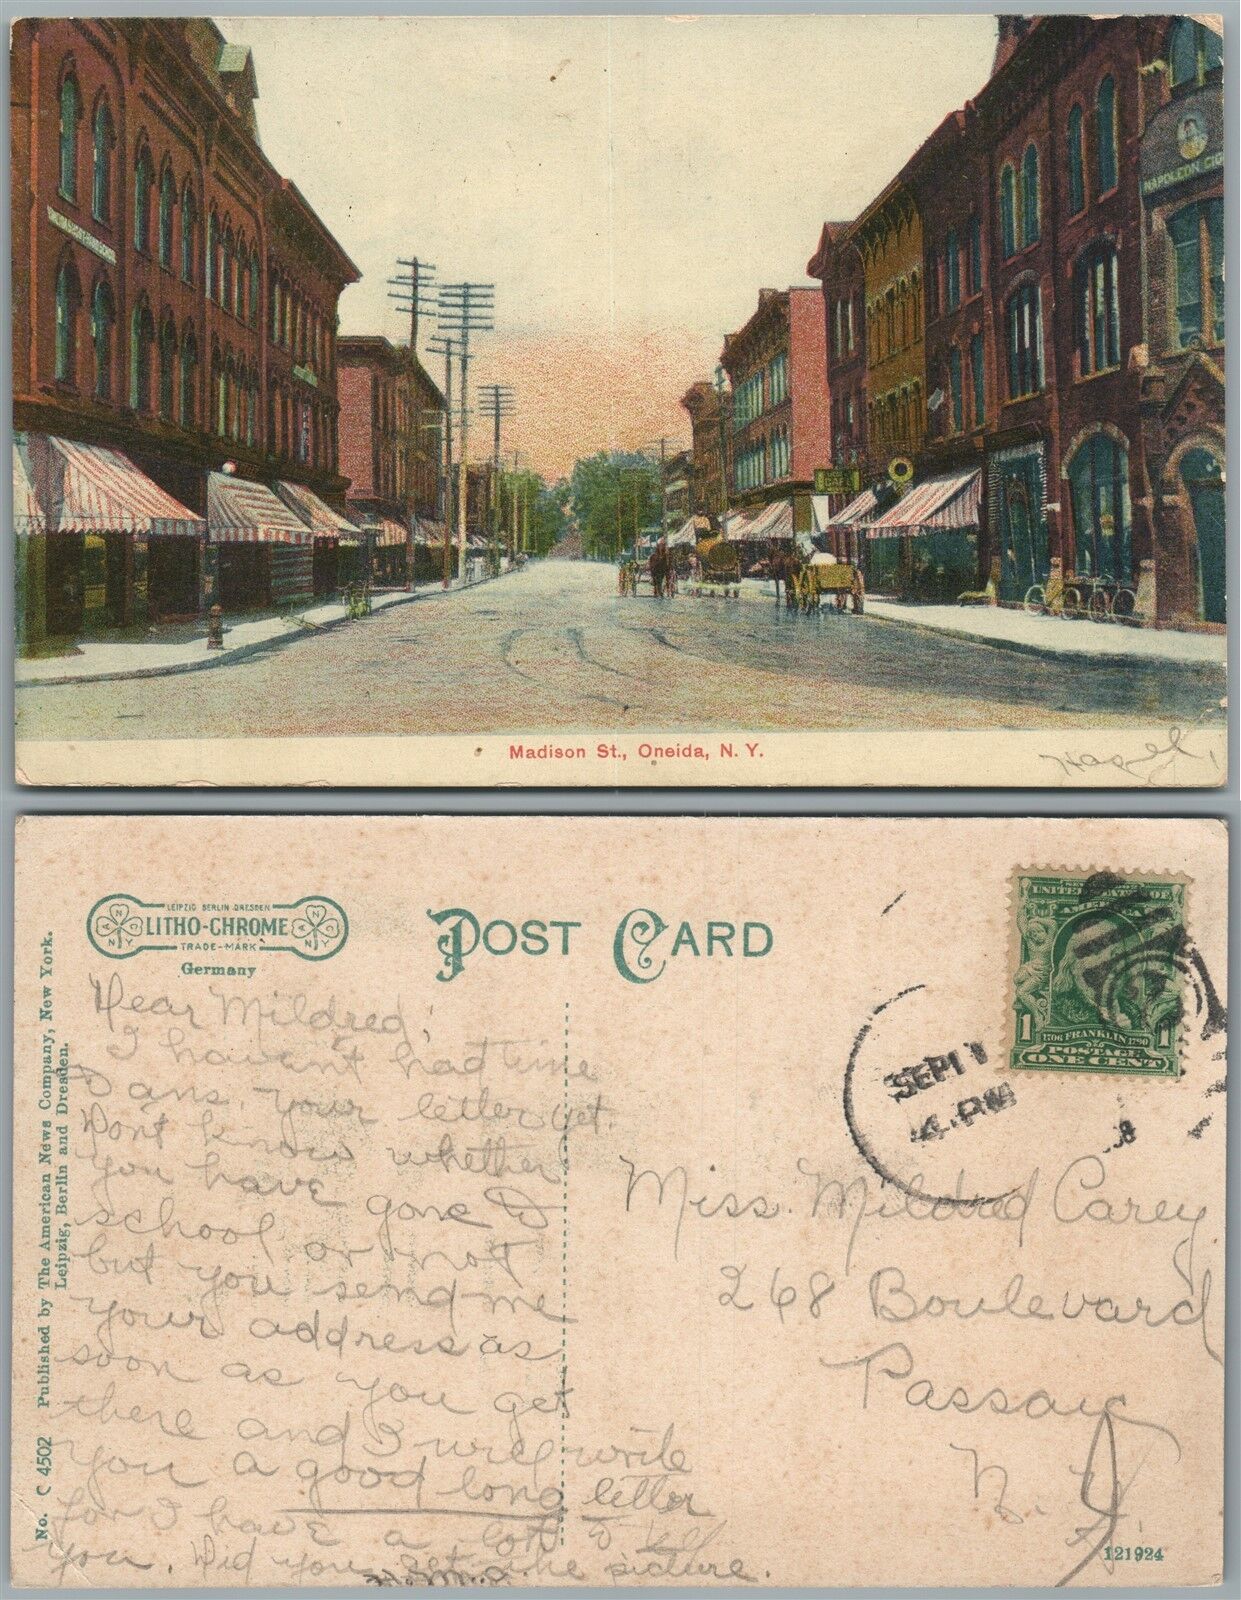 NAPOLEON CIG
Madison St., Oneida, N. Y.
Hazel,
No. C 4502 Published by The American News Company, New York.
Leipzig, Berlin and Dresden.
LEIPZIG BERLIN DRESDEN
LITHO-CHROME
TRADE-MARK
Germany
POST CARD
UNITED STATES OF
AMERICA
1 1706 FRANKLIN 1790 1
POSTAGE
ONE CENT
SEP 11
4-PM
Dear Mildred,
I havent had time
to ans. your letter yet.
Dont know whether
you have gone to
school or not
but you send me
your address as
soon as you get
there and I will write
you a good long letter
for I have a lot to tell
you. Did you get the picture.
Miss. Mildred Carey
268 Boulevard
Passaic
N.
121924